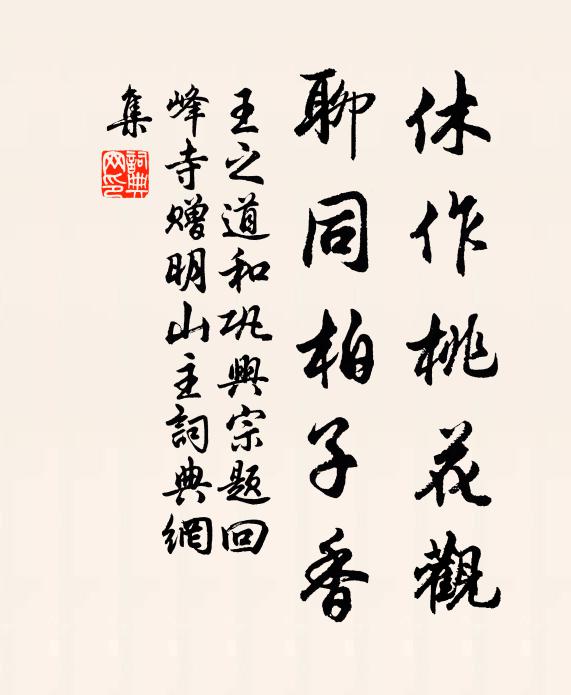 休作桃花觀
聊同柏子香
王之道和巩興宗題回
峰寺赠明山主詞典網
集
詞典網印